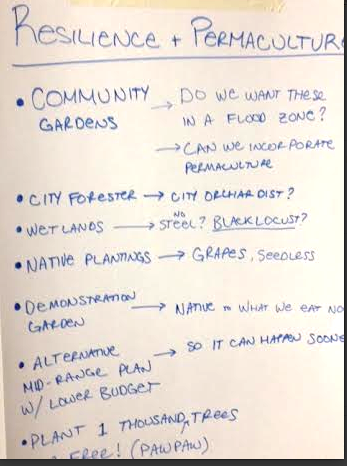 RESILIENCE + PERMACULTUR
• COMMUNITY GARDENS → DO WE WANT THESE IN A FLOOD ZONE?
→ CAN WE INCORPORATE PERMACULTURE
• CITY FORESTER → CITY ORCHARDIST?
• WETLANDS → NO STEEL? BLACK LOCUST?
• NATIVE PLANTINGS → GRAPES, SEEDLESS
• DEMONSTRATION GARDEN → NATIVE WHAT WE EAT NO
• ALTERNATIVE MID-RANGE PLAN W/ LOWER BUDGET → SO IT CAN HAPPEN SOONE
• PLANT 1 THOUSAND TREES
FREE! (PAWPAW)